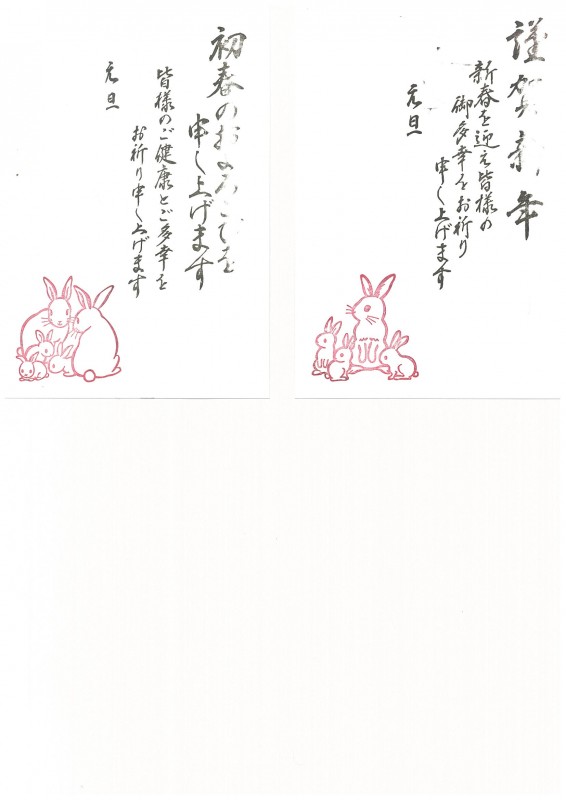 謹賀新年
新春を迎え皆様の
御多幸をお祈り
申し上げます
元旦
初春のおよろこびを
申し上げます
皆様のご健康とご多幸を
お祈り申し上げます
元旦